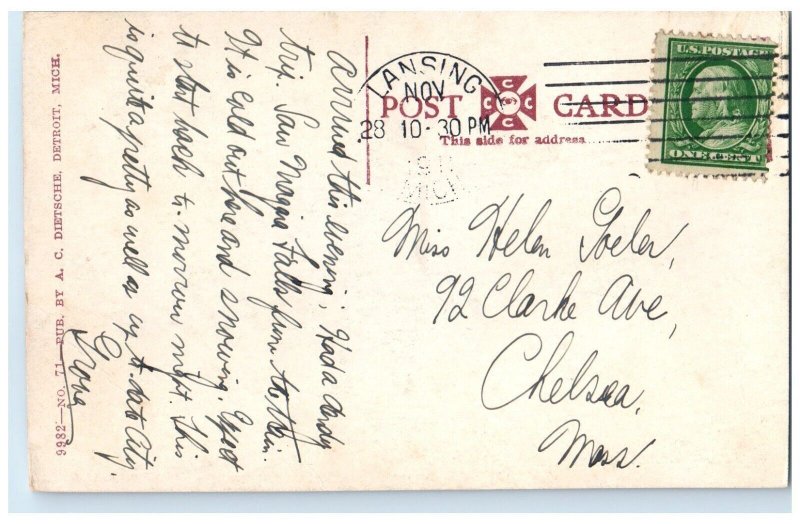 9982—NO. 71—PUB. BY A. C. DIETSCHE, DETROIT, MICH.
Arrived this evening; Had a dandy
trip. Saw Niagra Falls from train.
It is cold out here and snowing. Expect
to start back to-morrow night. This
is quite a pretty as well as up to date City.
LANSING
NOV
28 10-30 PM
MICH
POST CARD
CCCC
This side for address
U.S. POSTAGE
ONE CENT
Miss Helen
92 Clarke Ave,
Chelsea,
Mass.